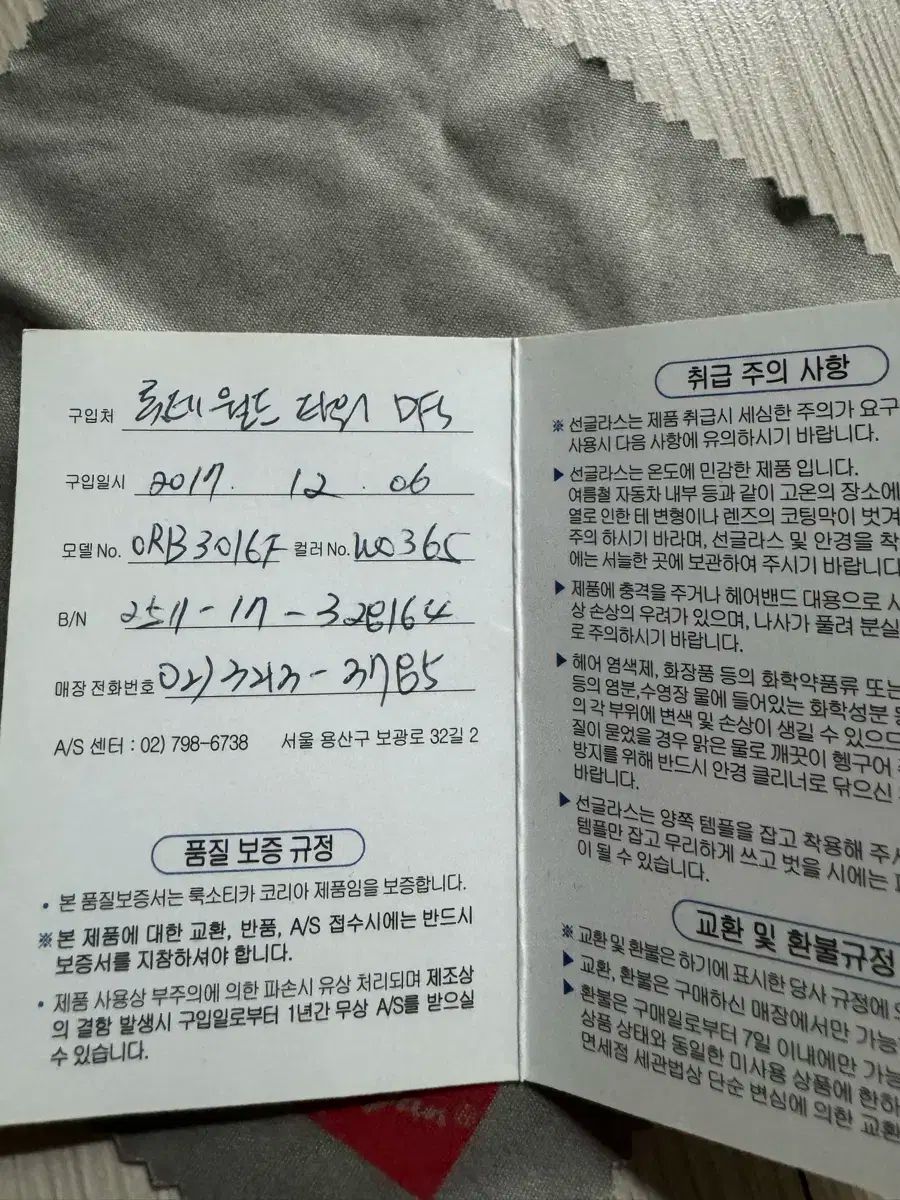 구입처 롯데월드 타워 DFS
구입일시 2017. 12. 06
모델 No. 0RB3016F 컬러 No. W0365
B/N 2511-17-328164
매장 전화번호 02) 3213-3785
A/S 센터 : 02) 798-6738 서울 용산구 보광로 32길 2
품질 보증 규정
• 본 품질보증서는 룩소티카 코리아 제품임을 보증합니다.
※ 본 제품에 대한 교환, 반품, A/S 접수시에는 반드시
보증서를 지참하셔야 합니다.
• 제품 사용상 부주의에 의한 파손시 유상 처리되며 제조상
의 결함 발생시 구입일로부터 1년간 무상 A/S를 받으실
수 있습니다.
취급 주의 사항
※ 선글라스는 제품 취급시 세심한 주의가 요구
사용시 다음 사항에 유의하시기 바랍니다.
▶ 선글라스는 온도에 민감한 제품 입니다.
여름철 자동차 내부 등과 같이 고온의 장소에
열로 인한 테 변형이나 렌즈의 코팅막이 벗겨
주의 하시기 바라며, 선글라스 및 안경을 착
에는 서늘한 곳에 보관하여 주시기 바랍니다
▶ 제품에 충격을 주거나 헤어밴드 대용으로 사
상 손상의 우려가 있으며, 나사가 풀려 분실
로 주의하시기 바랍니다.
▶ 헤어 염색제, 화장품 등의 화학약품류 또는
등의 염분,수영장 물에 들어있는 화학성분
의 각 부위에 변색 및 손상이 생길 수 있으
질이 묻었을 경우 맑은 물로 깨끗이 헹구어
방지를 위해 반드시 안경 클리너로 닦으신
바랍니다.
▶ 선글라스는 양쪽 템플을 잡고 착용해 주시
템플만 잡고 무리하게 쓰고 벗을 시에는
이 될 수 있습니다.
교환 및 환불규정
※ 교환 및 환불은 하기에 표시한 당사 규정에
▶ 교환, 환불은 구매하신 매장에서만 가능
▶ 환불은 구매일로부터 7일 이내에만 가능
상품 상태와 동일한 미사용 상품에 한하
면세점 세관법상 단순 변심에 의한 교환